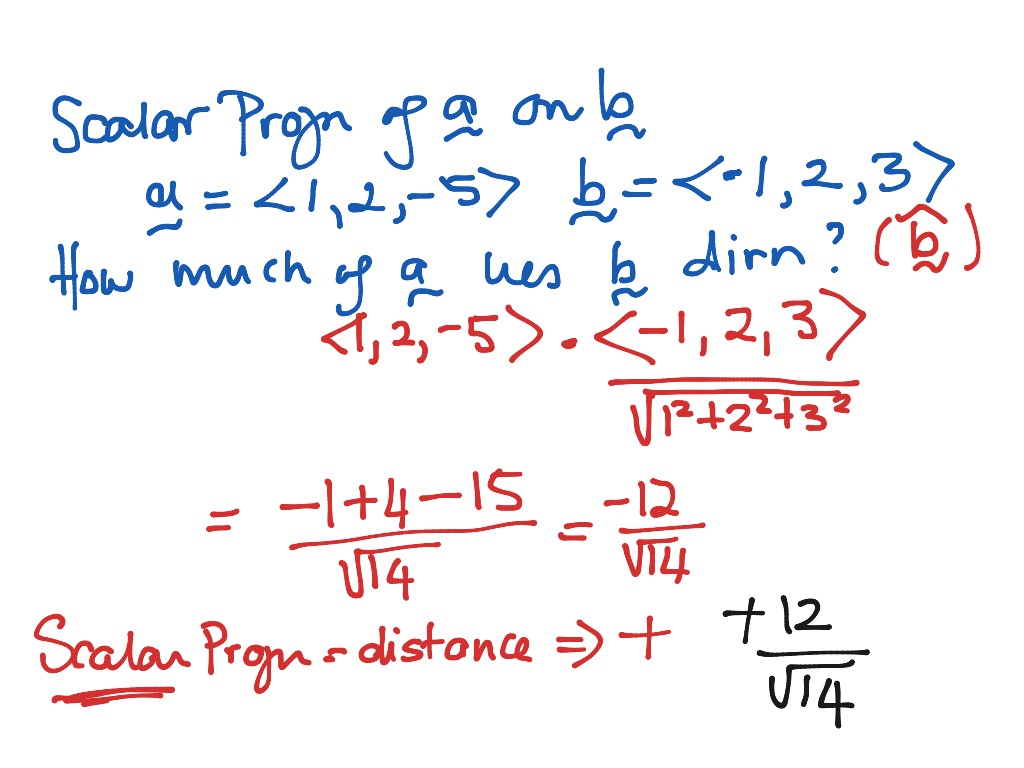 Scalar Projn of a on b
a = <1, 2, -5> b = <-1, 2, 3>
How much of a lies b dirn? (b̂)
<1, 2, -5> · <-1, 2, 3> / √1²+2²+3²
= -1+4-15 / √14 = -12 / √14
Scalar Projn - distance ⇒ + +12 / √14